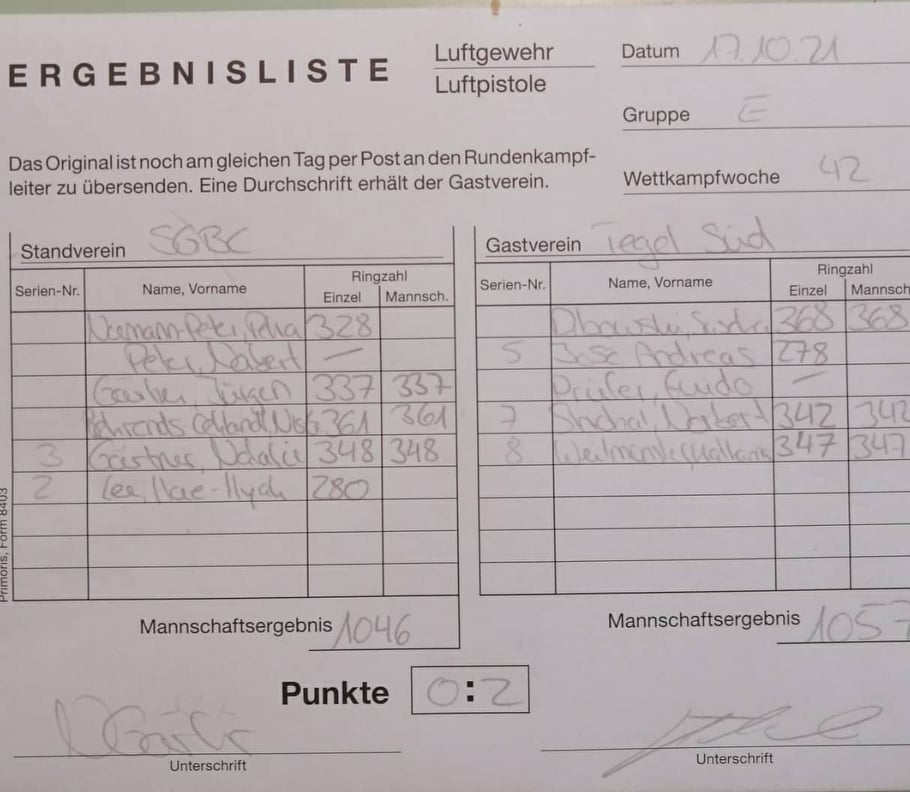 ERGEBNISLISTE
Luftgewehr
Luftpistole
Datum 17.10.21
Gruppe E
Wettkampfwoche 42
Das Original ist noch am gleichen Tag per Post an den Rundenkampf-
leiter zu übersenden. Eine Durchschrift erhält der Gastverein.
Standverein SGBC
Serien-Nr. Name, Vorname Ringzahl
Einzel Mannsch.
328
Peter, Norbert —
Jürgen 337 337
361 361
3 Gärtner, Natalie 348 348
2 Lee, 280
Mannschaftsergebnis 1046
Gastverein Tegel Süd
Serien-Nr. Name, Vorname Ringzahl
Einzel Mannsch
368 368
5 Andreas 278
Prüfer, Guido —
7 Norbert 342 342
8 347 347
Mannschaftsergebnis 1057
Punkte 0:2
Unterschrift
Unterschrift
Primoris, Form 8403